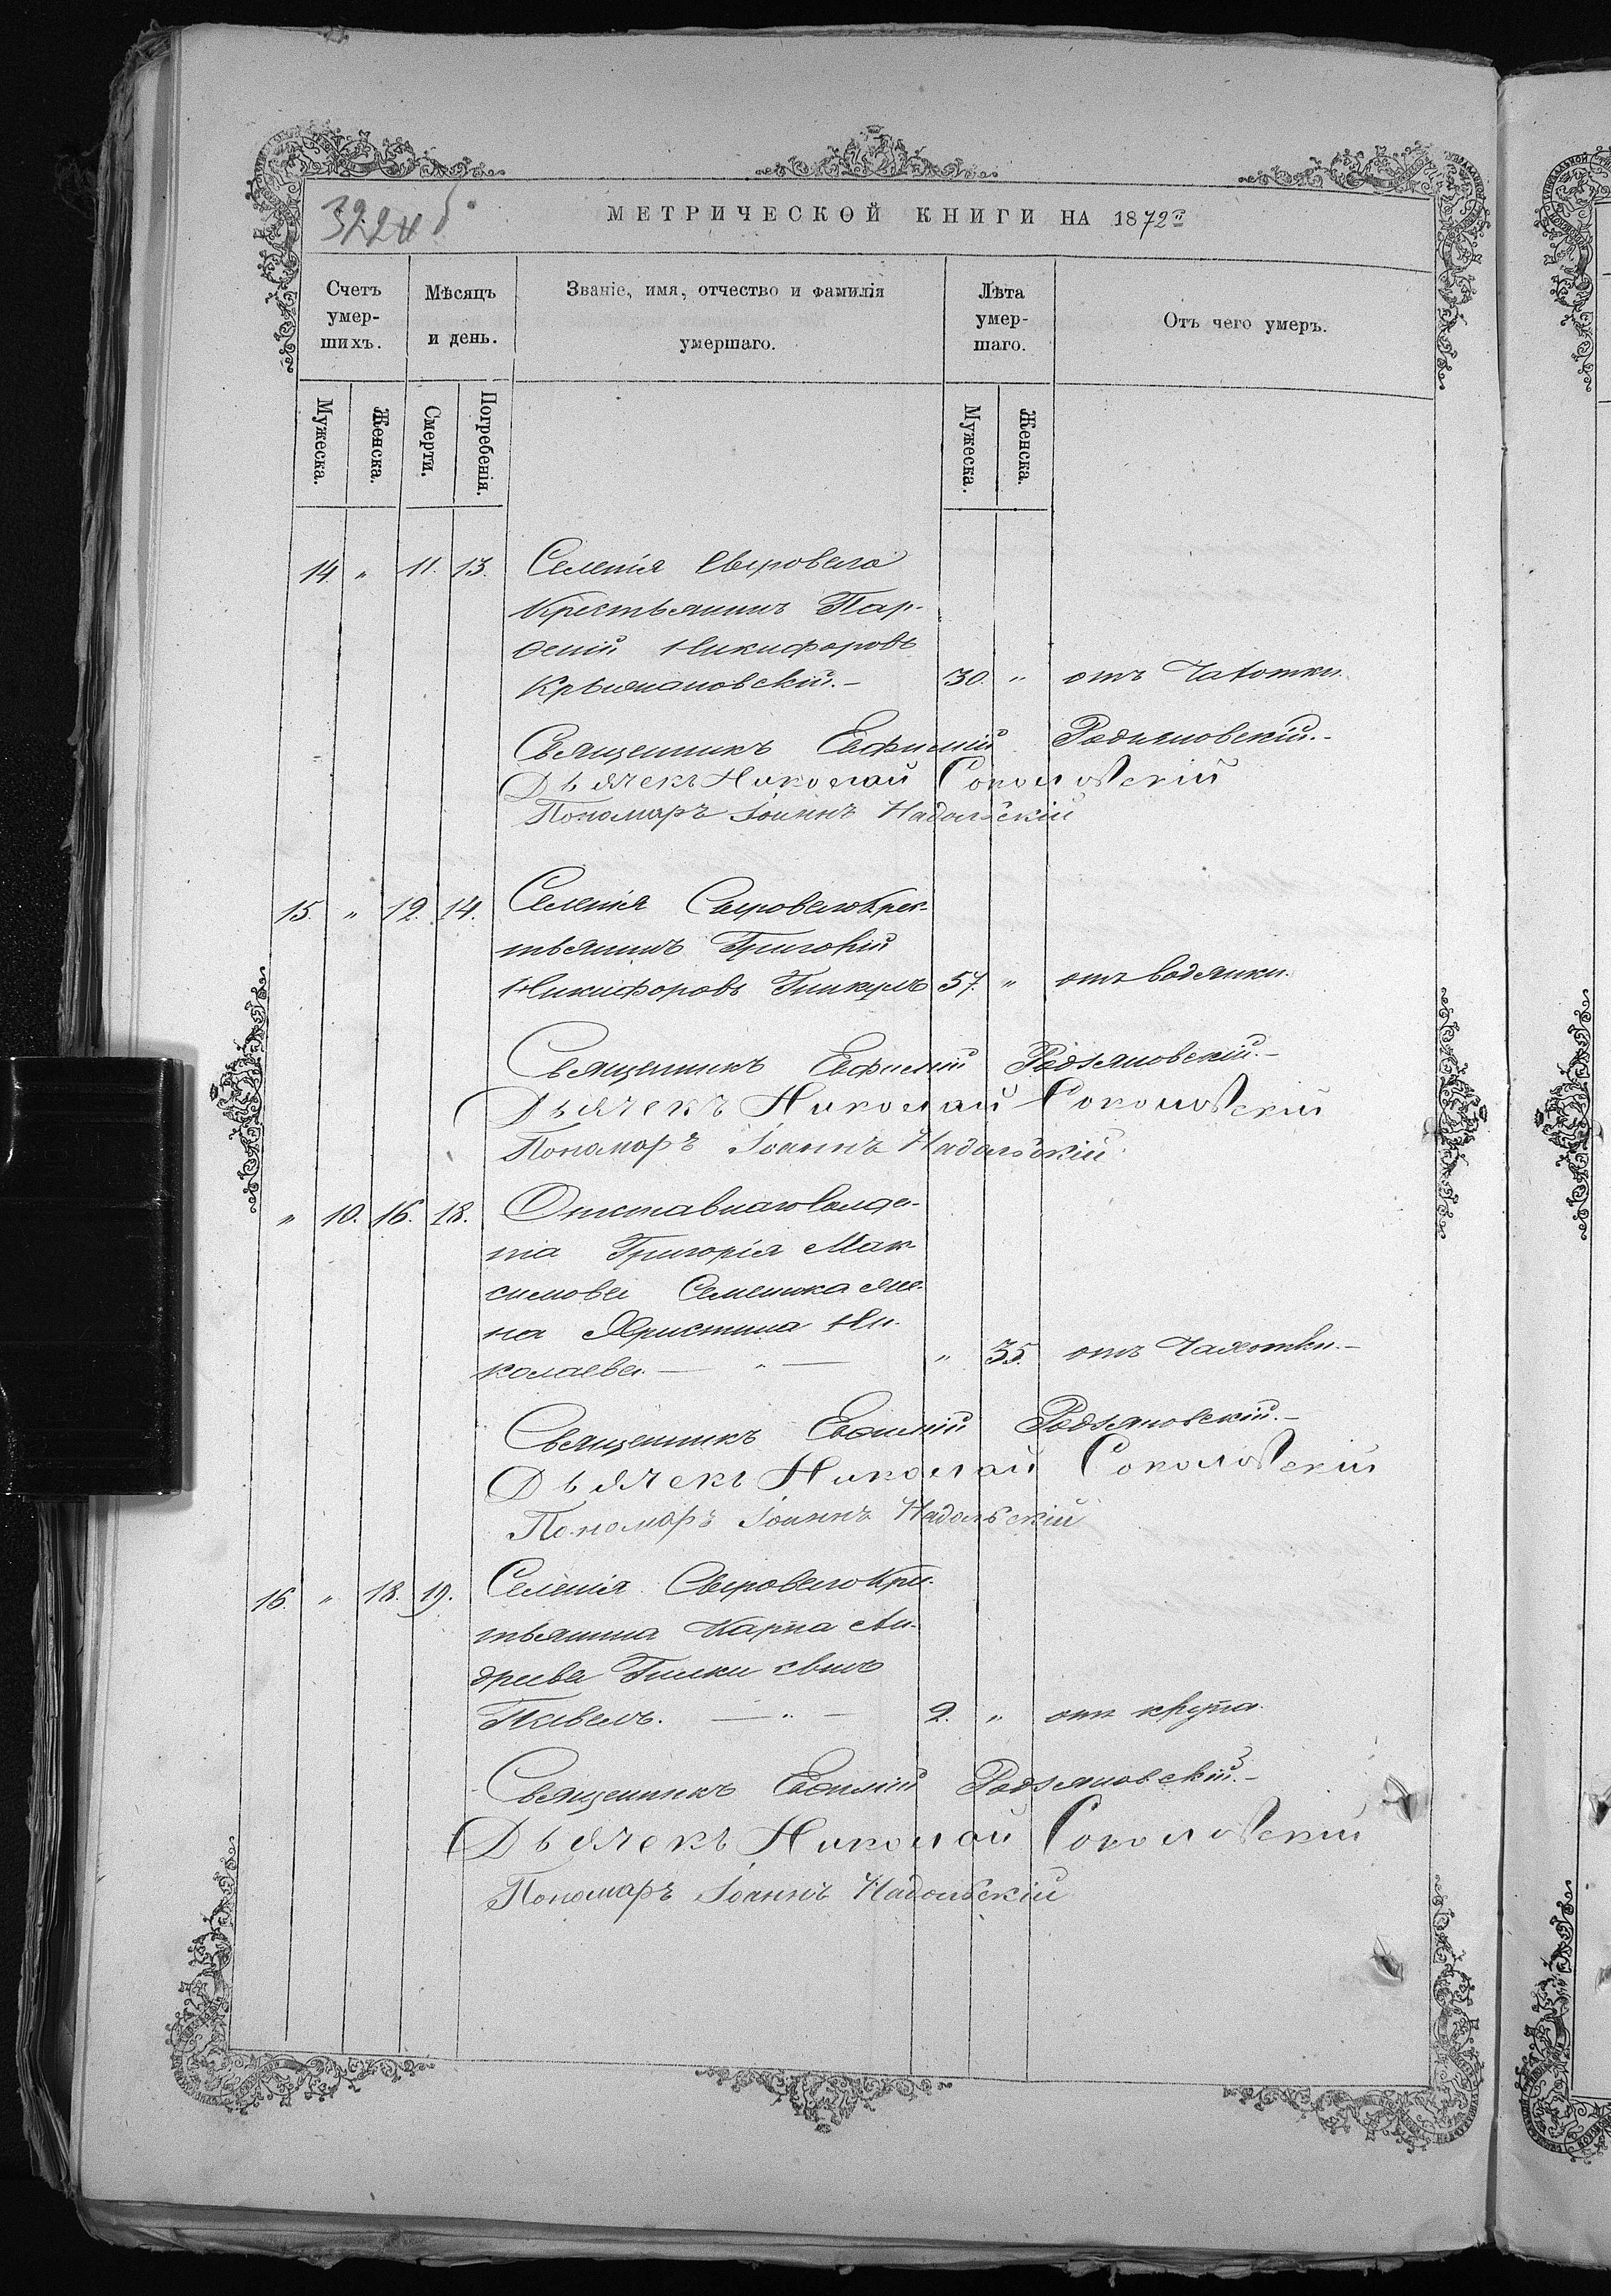 МЕТРИЧЕСКОЙ КНИГИ НА 1872
Счетъ умер-шихъ.
Мѣсяцъ и день.
Званіе, имя, отчество и фамилія умершаго.
Лѣта умер-шаго.
Отъ чего умеръ.
Мужеска.
Женска.
Смерти.
Погребенія.
Мужеска.
Женска.
14 " 11. 13. Селенія Сыроваго
Крестьянинъ Пар-
ѳеній Никифоровъ
Крыжановскій.- 30. " отъ Чахотки.
Священникъ Евфимій Родзяновскій.-
Дьячекъ Николай Соколовскій
Пономарь Іоаннъ Надольскій
15. " 12. 14. Селенія Сыроваго Крес-
тьянинъ Григорій
Никифоровъ Гинкулъ 57. " отъ водянки.
Священникъ Евфимій Родзяновскій.-
Дьячекъ Николай Соколовскій
Пономарь Іоаннъ Надольскій
" 10. 16. 18. Отставнаго Солда-
та Григорія Мак-
симова Семенюка же-
на Христина Ни-
колаева. — " — " 35. отъ Чахотки.-
Священникъ Евфимій Родзяновскій.-
Дьячекъ Николай Соколовскій
Пономарь Іоаннъ Надольскій
16. " 18. 19. Селенія Сыроваго Крес-
тьянина Карпа Ан-
дреева сынъ
Павелъ. — " — 2. " отъ крупа.
Священникъ Евфимій Родзяновскій.-
Дьячекъ Николай Соколовскій
Пономарь Іоаннъ Надольскій